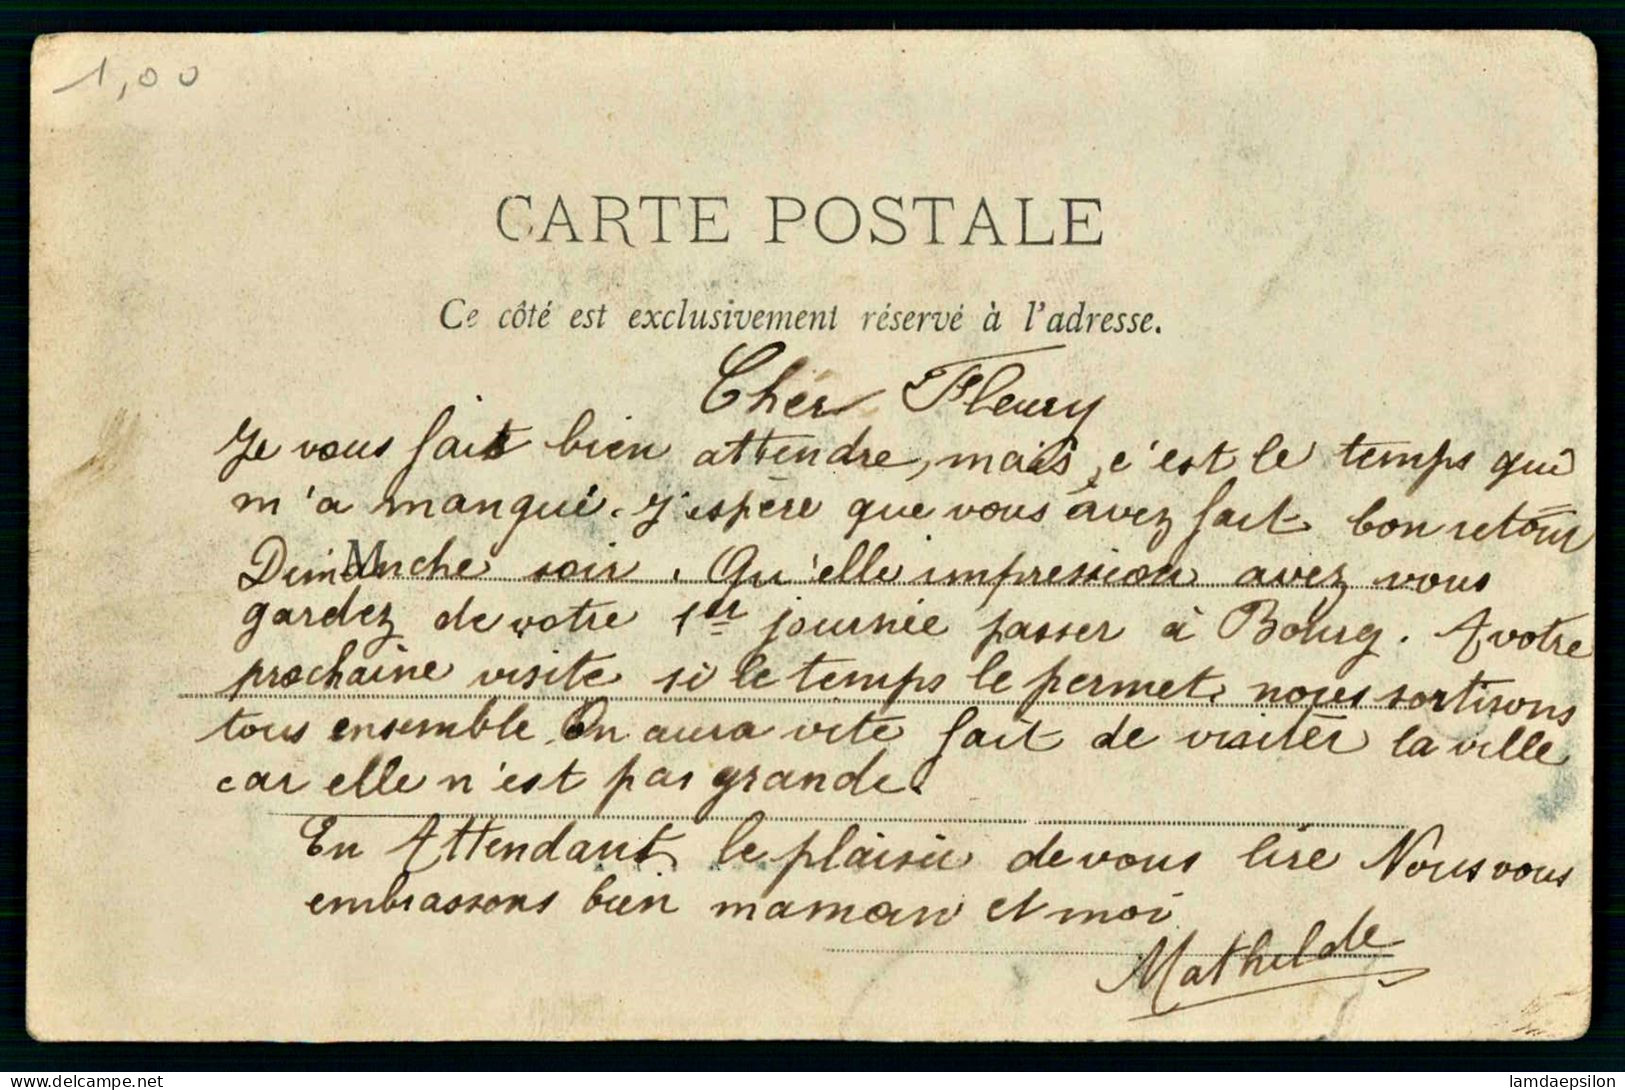 1,00
CARTE POSTALE
Ce côté est exclusivement réservé à l'adresse.
Cher Fleury
Je vous fait bien attendre, mais, c'est le temps qui
m'a manqué. J'espère que vous avez fait bon retour
M
Dimanche soir. Qu'elle impression avez vous
gardez de votre 1er journée passer à Bourg. A votre
prochaine visite si le temps le permet, nous sortirons
tous ensemble On aura vite fait de visiter la ville
car elle n'est pas grande.
En Attendant le plaisir de vous lire Nous vous
embrassons bien maman et moi
Mathilde
delcampe.net
lamdaepsilon